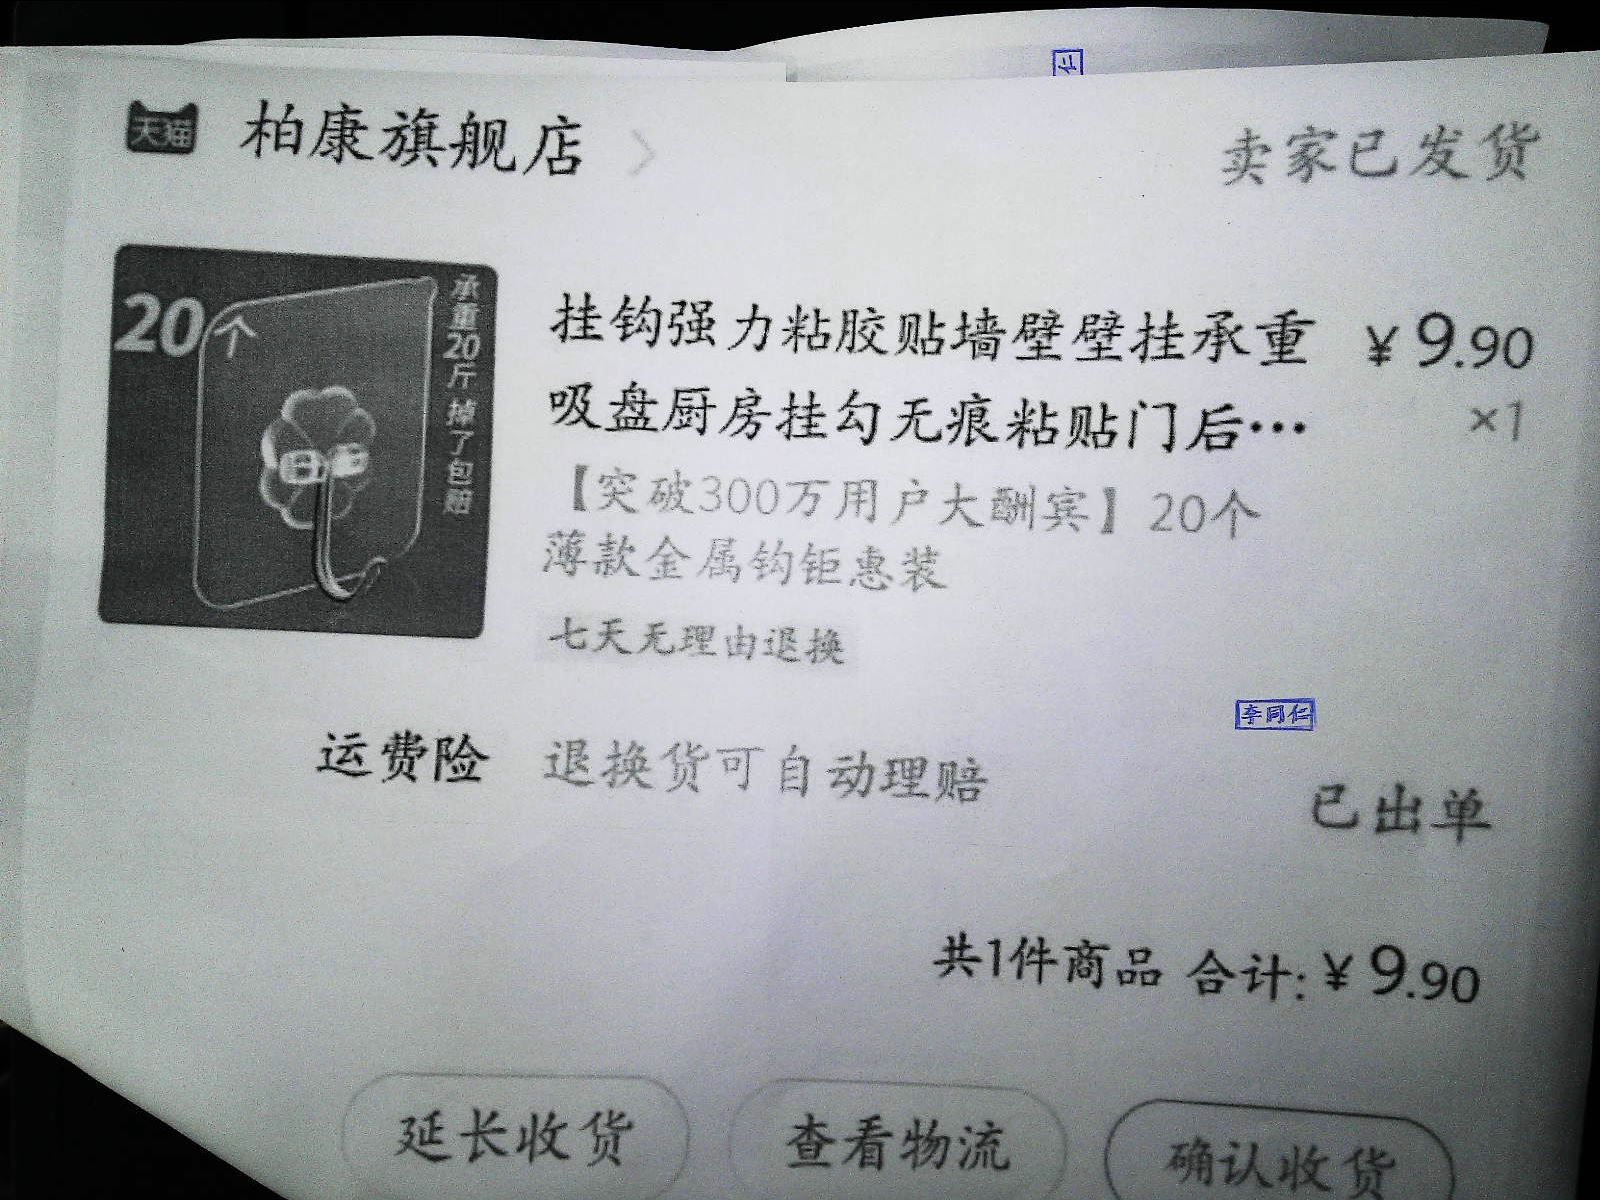 仁
天猫 柏康旗舰店 > 卖家已发货
20个
承重20斤 掉了包赔
挂钩强力粘胶贴墙壁壁挂承重 ¥9.90
吸盘厨房挂勾无痕粘贴门后… ×1
【突破300万用户大酬宾】20个
薄款金属钩钜惠装
七天无理由退换
李同仁
运费险 退换货可自动理赔
已出单
共1件商品 合计:¥9.90
延长收货 查看物流 确认收货